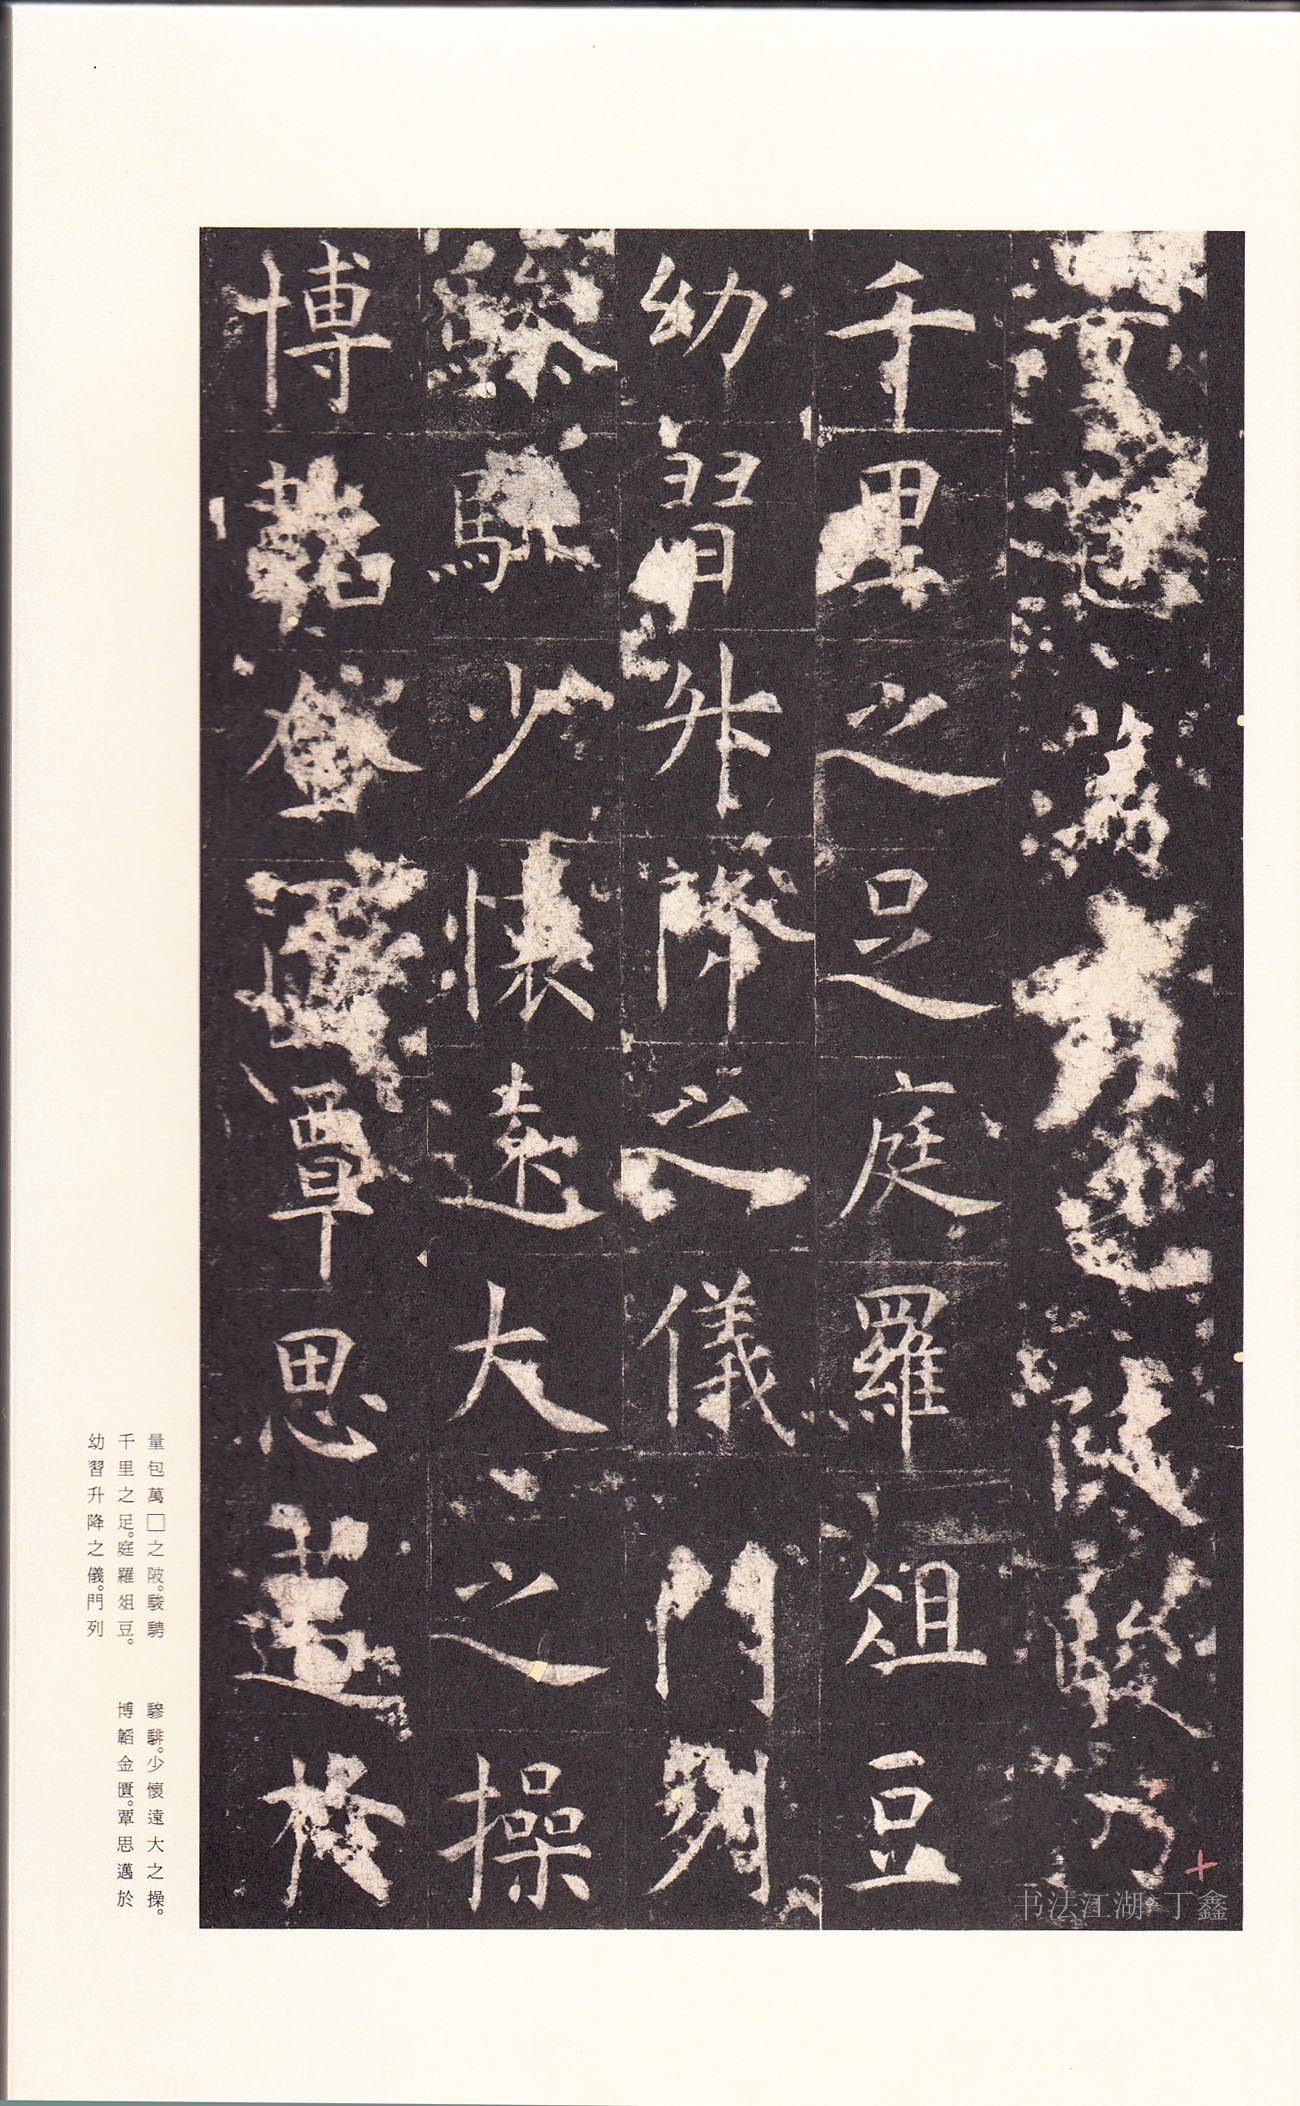 千里之足庭羅俎豆
幼習升降之儀門列
驂騑少懷遠大之操
博韜金匱覃思邁於
量包萬□之陂。駿騁
千里之足。庭羅俎豆。
幼習升降之儀。門列
驂騑。少懷遠大之操。
博韜金匱。覃思邁於
十
书法江湖 丁鑫